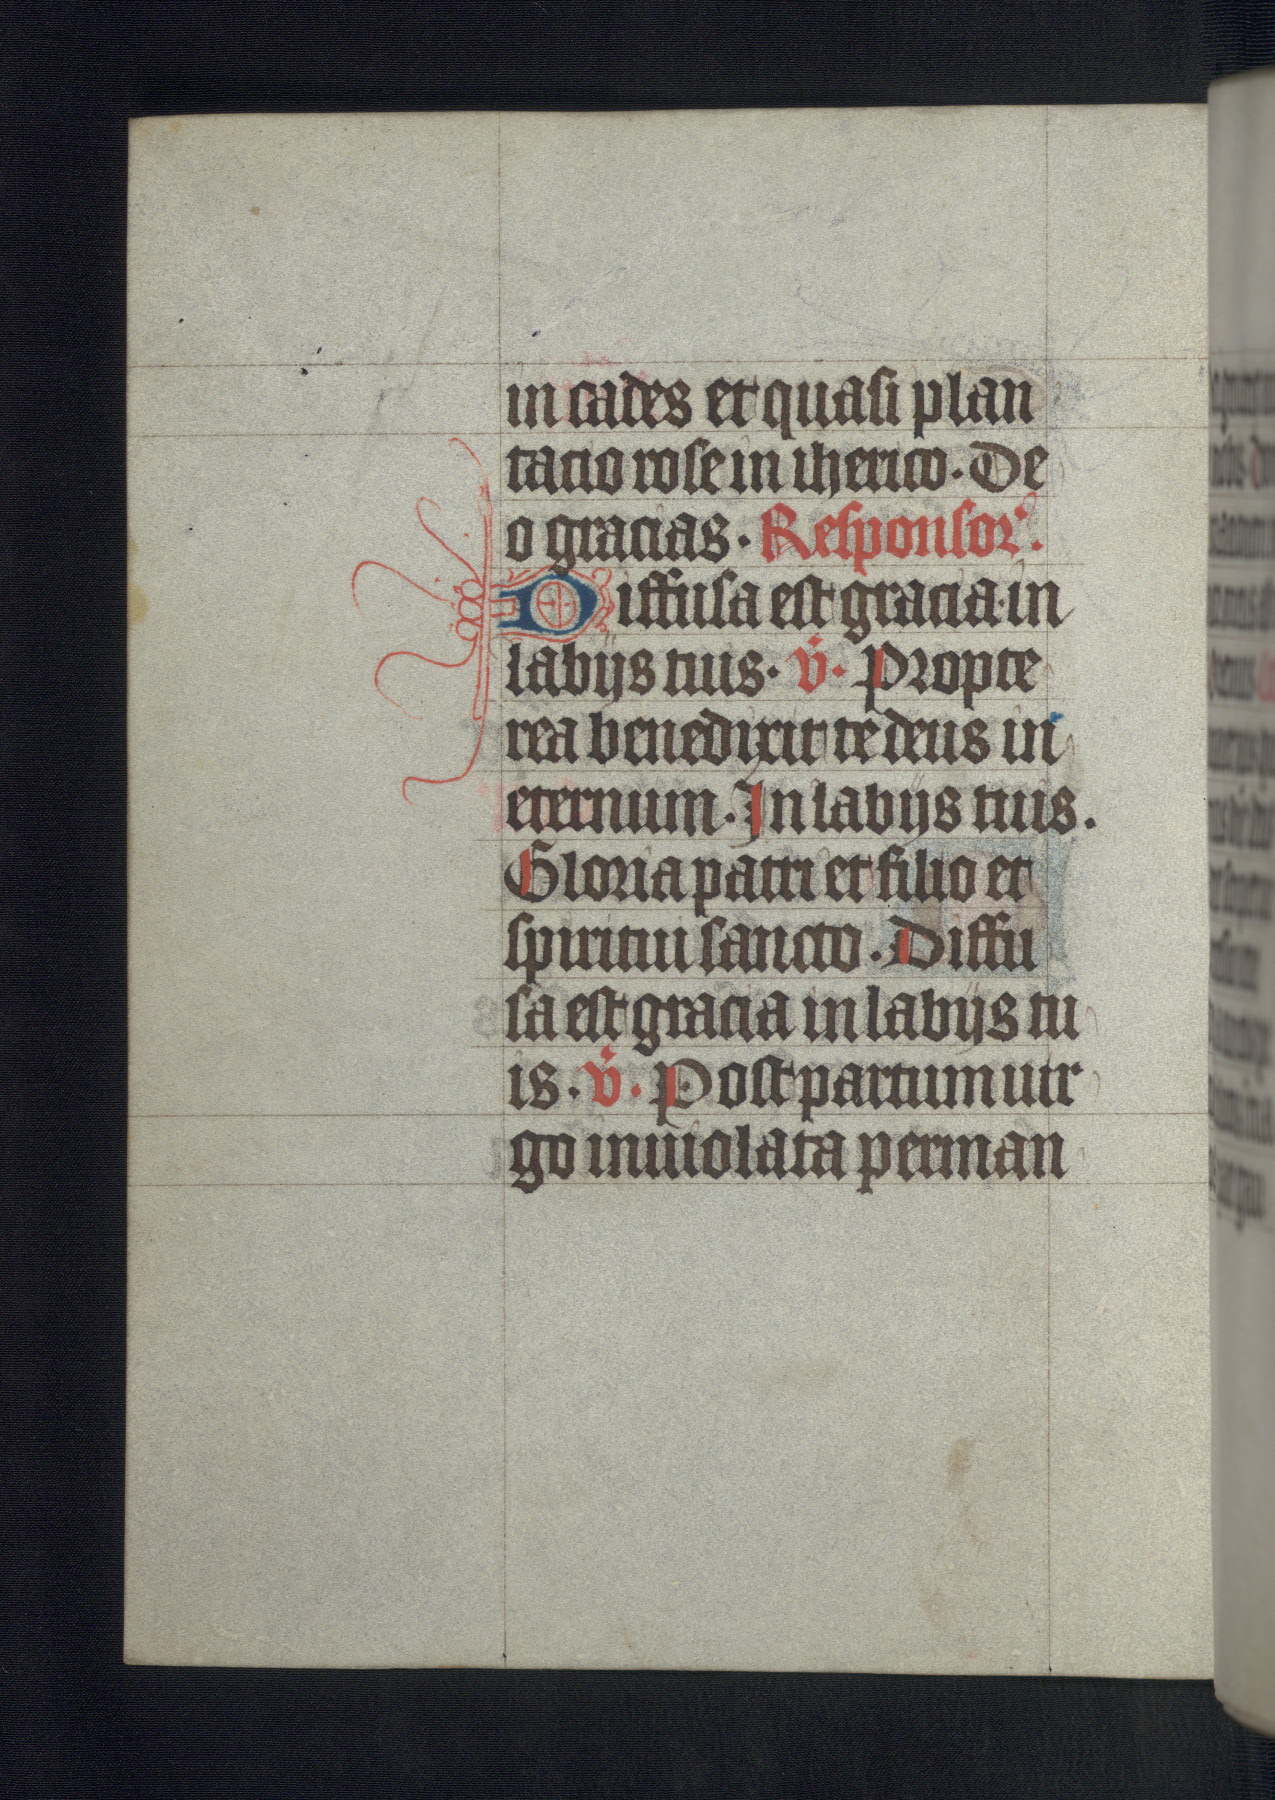 in cades et quasi plan
tacio rose in iherico. De
o gracias. Responsor᷑.
Diffusa est gracia in
labijs tuis. v̇. Propte
rea benedixit te deus in
eternum. In labijs tuis.
Gloria patri et filio et
spiritui sancto. Diffu
sa est gracia in labijs tu
is. v̇. Post partum uir
go inuiolata perman